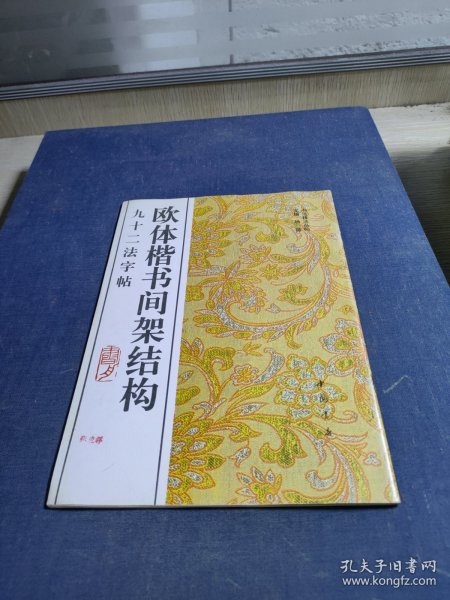 欧体楷书间架结构
九十二法字帖
中国书店
孔夫子旧书网
www.kongfz.com